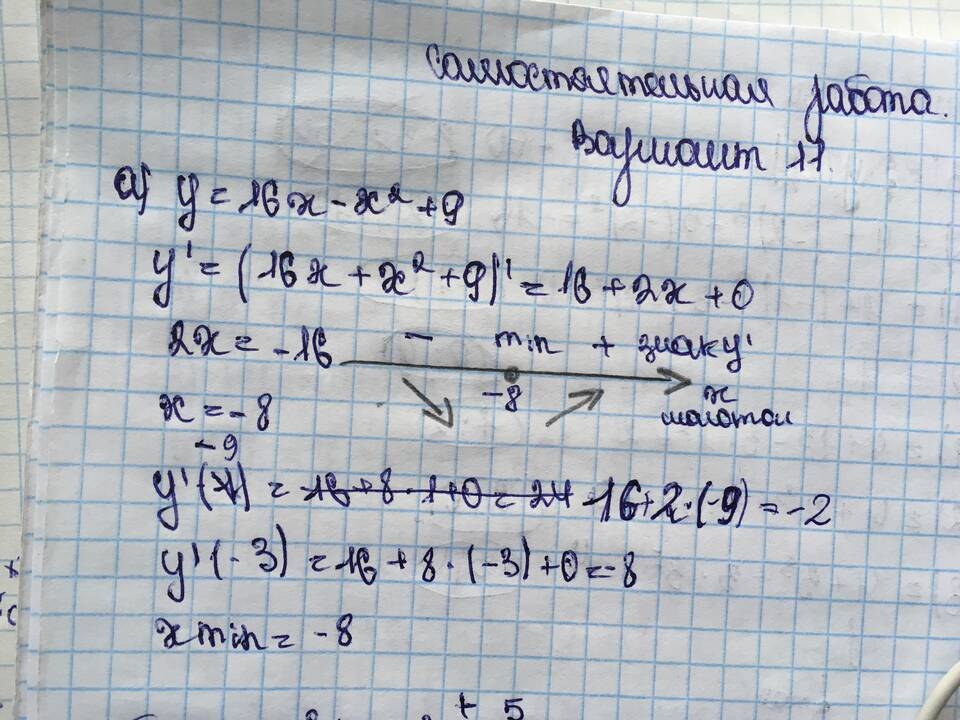 Самостоятельная работа.
Вариант 11.
а) y = 16x - x² + 9
y' = (16x + x² + 9)' = 16 + 2x + 0
2x = -16 - min + знак y'
-8 x
x = -8
-9
y'( ) = 16 + 8 · 1 + 0 = 24 16 + 2 · (-9) = -2
y'(-3) = 16 + 8 · (-3) + 0 = -8
x min = -8
+ 5